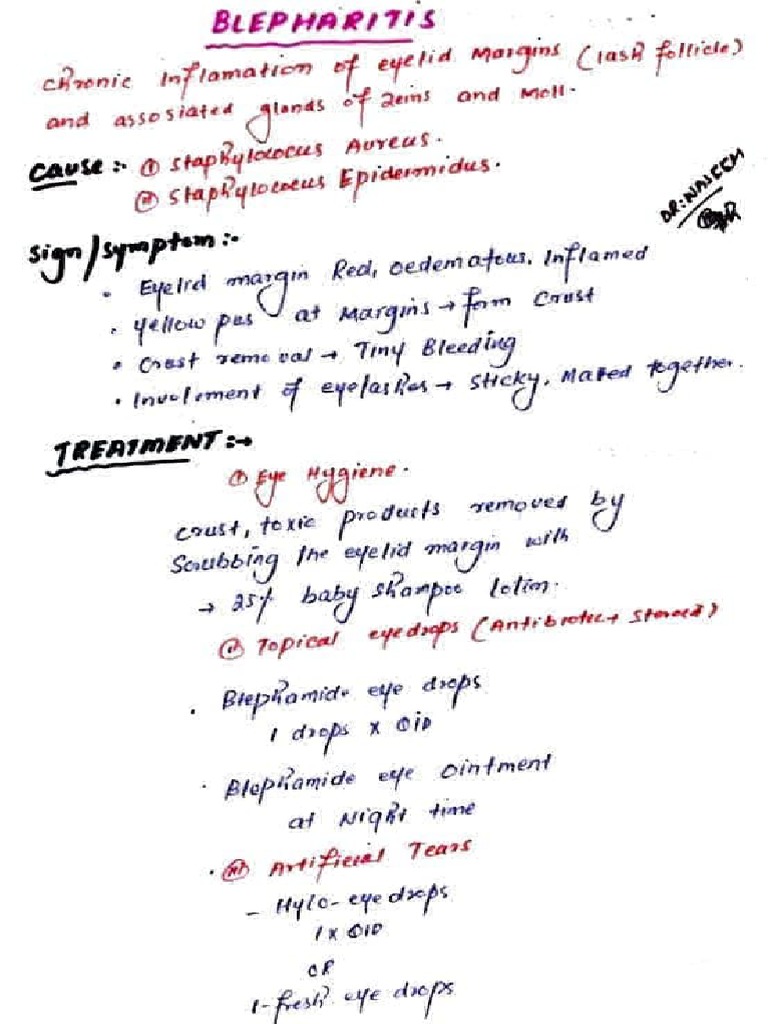 BLEPHARITIS
Chronic Inflamation of eyelid Margins (lash follicle)
and assosiated glands of Zeins and Moll.
Cause :- (i) Staphylococus Aureus.
(ii) Staphylococus Epidermidus.
DR: NASEEM
Sign/Symptom :-
• Eyelid margin Red, oedematous. Inflamed
• Yellow pus at Margins → form Crust
• Crust removal → Tiny Bleeding
• Involvment of eyelashes → sticky, Mated together.
TREATMENT :→
(i) Eye Hygiene.
Crust, toxic products removed by
Scrubbing the eyelid margin with
→ 25% baby shampoo lotion.
(ii) Topical eyedrops (Antibiotic + Steroid)
• Blephamide eye drops
1 drops x QID
• Blephamide eye Ointment
at Night time
• (iii) Artificial Tears
- Hylo-eye drops
1 x QID
OR
1-fresh eye drops